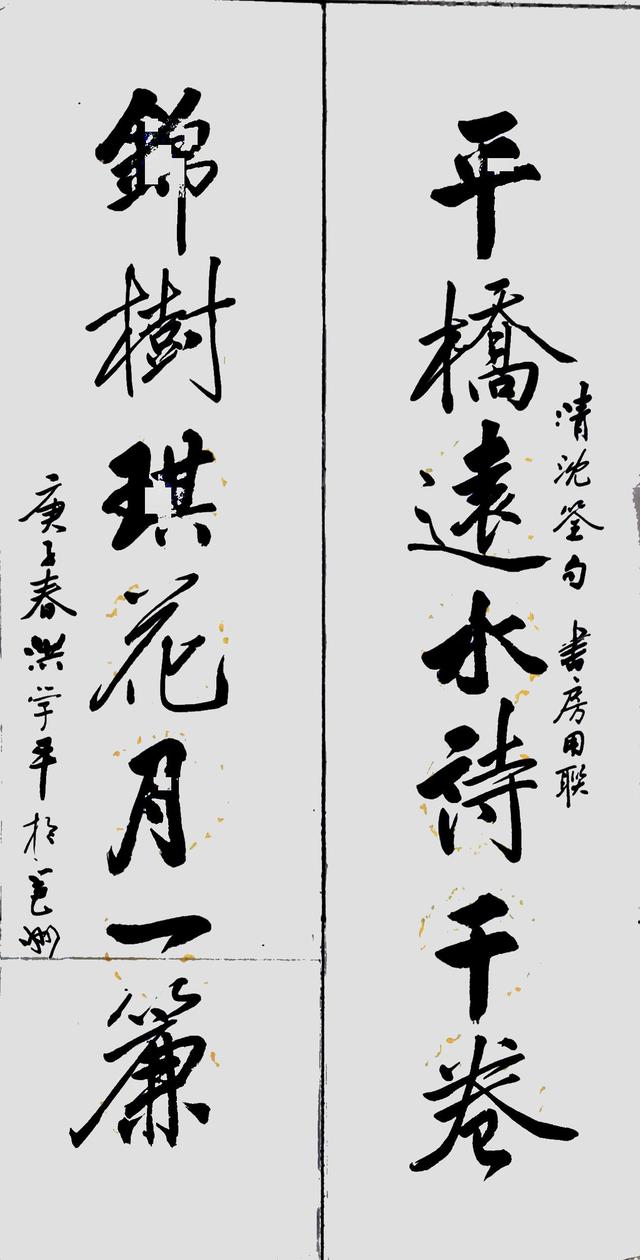 清沈筌句 書房用聯
平橋遠水詩千卷
錦樹琪花月一簾
庚子春洪学平於邕州